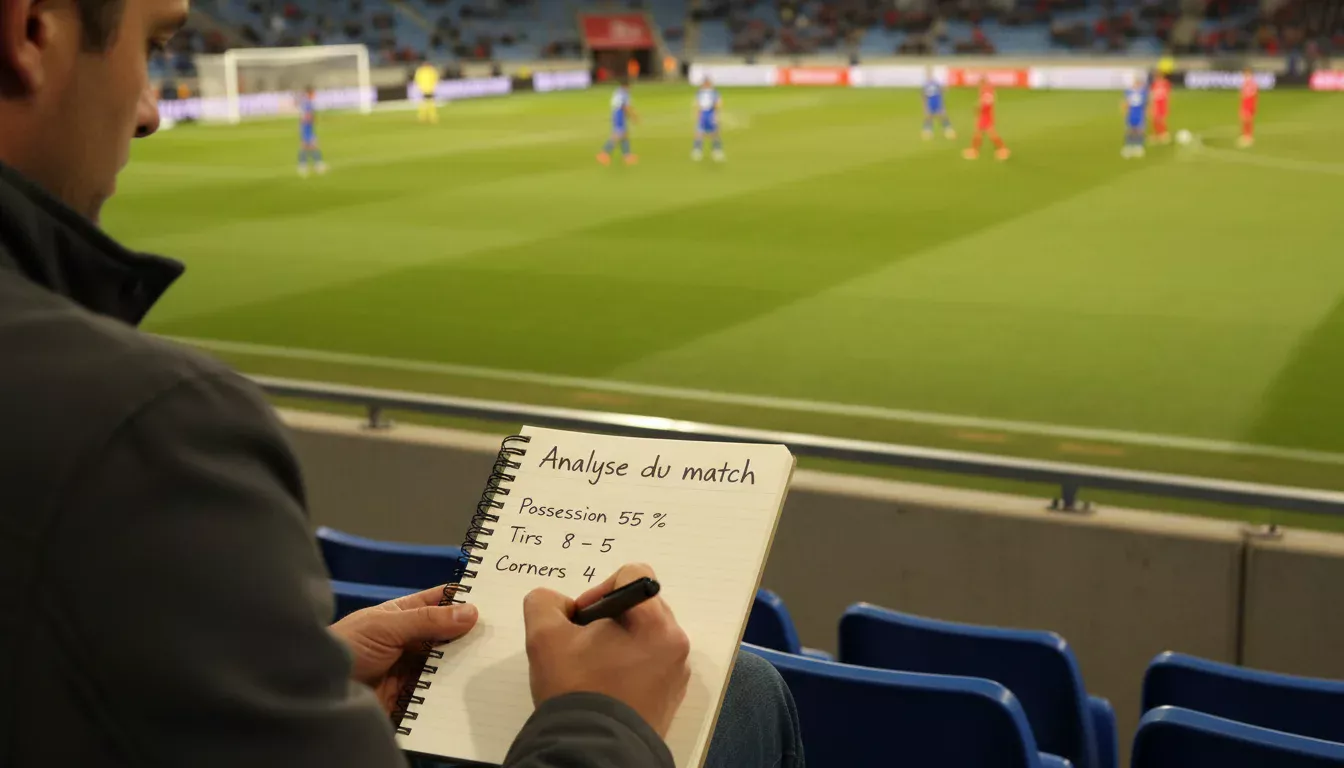 Analyse du match
Possession 55 %
Tirs 8 – 5
Corners 4